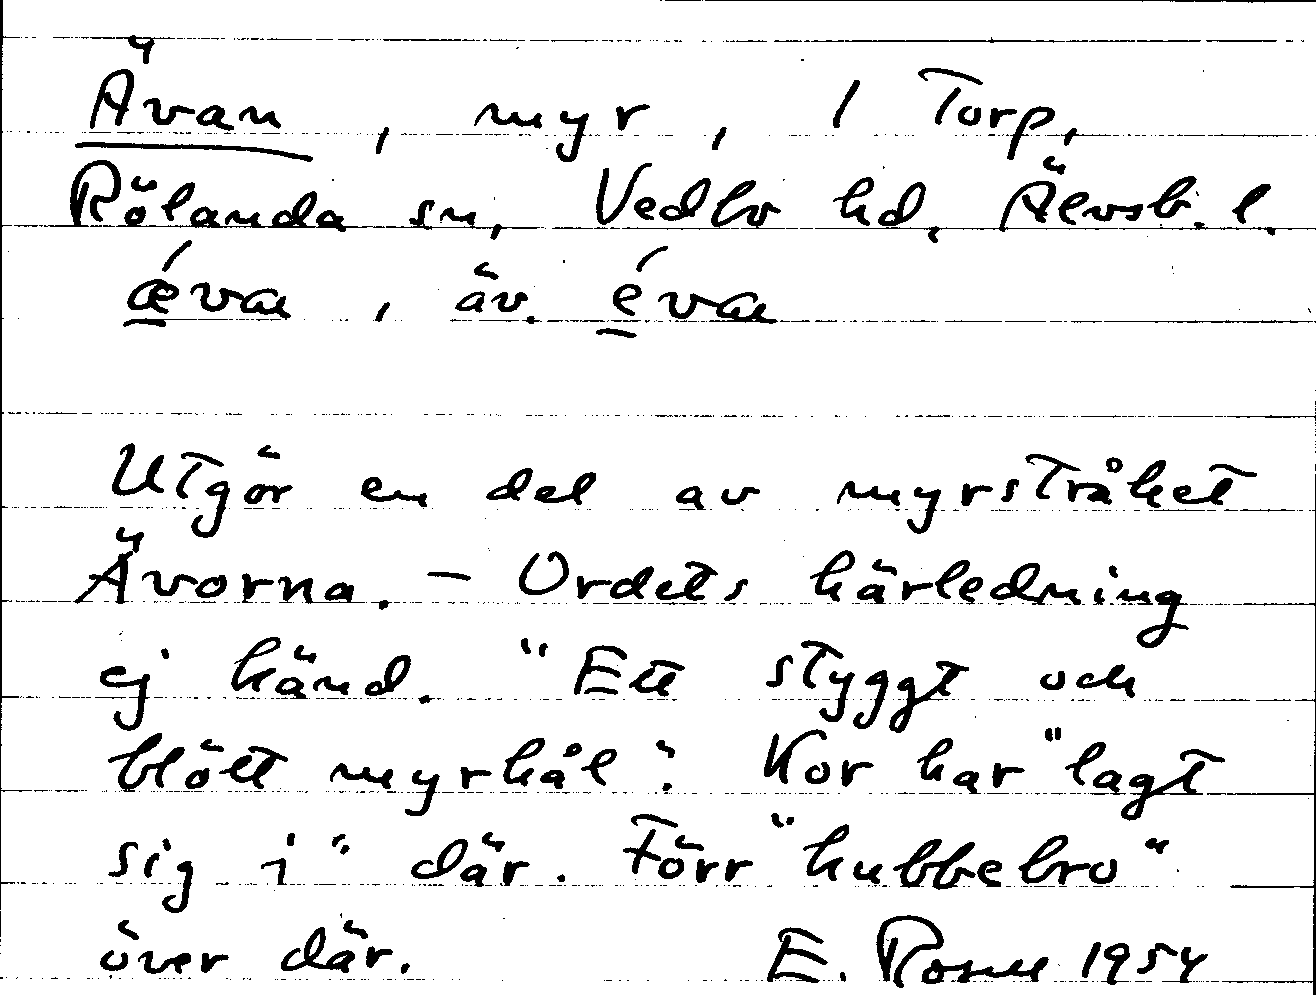 Ävan, myr, 1 Torp,
Rölanda sn, Vedbo hd, Älvsb. l.
ǽvan, äv. évan
Utgör en del av myrstråket
Ävorna. – Ordets härledning
ej känd. "Ett styggt och
blött myrhål". Kor har "lagt
sig i" där. Förr "kubbebro"
över där. E. Rosell 1954